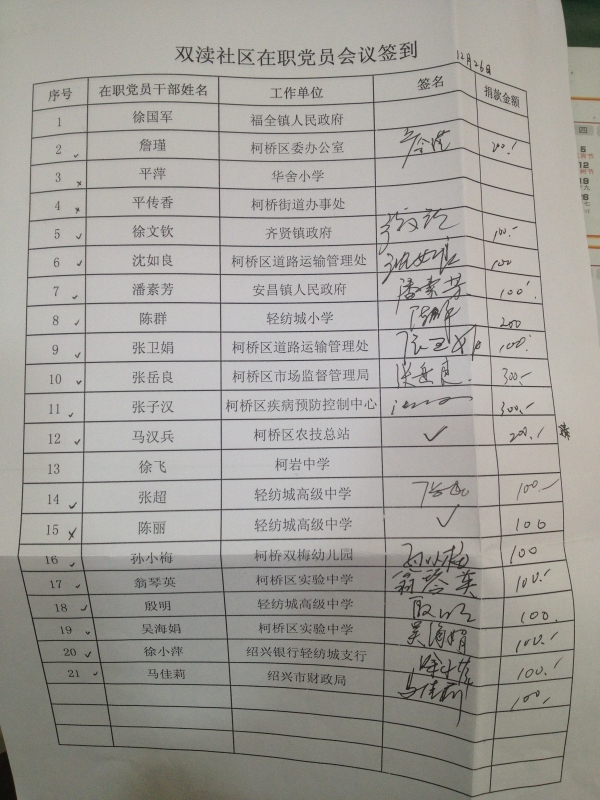 双渎社区在职党员会议签到
12月26日
序号 在职党员干部姓名 工作单位 签名 捐款金额
1 徐国军 福全镇人民政府
2 ✓ 詹瑾 柯桥区委办公室 200.-
3 × 平萍 华舍小学
4 × 平传香 柯桥街道办事处
5 ✓ 徐文钦 齐贤镇政府 100.-
6 ✓ 沈如良 柯桥区道路运输管理处 沈如良 100
7 ✓ 潘素芳 安昌镇人民政府 潘素芳 100.-
8 ✓ 陈群 轻纺城小学 陈群 200
9 ✓ 张卫娟 柯桥区道路运输管理处 张卫娟 100.-
10 ✓ 张岳良 柯桥区市场监督管理局 张岳良 300.-
11 ✓ 张子汉 柯桥区疾病预防控制中心 300.-
12 ✓ 马汉兵 柯桥区农技总站 ✓ 200.-
13 徐飞 柯岩中学
14 ✓ 张超 轻纺城高级中学 张超 100.-
15 × 陈丽 轻纺城高级中学 ✓ 100
16 ✓ 孙小梅 柯桥双梅幼儿园 孙小梅 100
17 ✓ 翁琴英 柯桥区实验中学 翁琴英 100.-
18 ✓ 殷明 轻纺城高级中学 殷明 100.
19 ✓ 吴海娟 柯桥区实验中学 吴海娟 100.-
20 ✓ 徐小萍 绍兴银行轻纺城支行 徐小萍 100.-
21 ✓ 马佳莉 绍兴市财政局 马佳莉 100.
四
5
12
19